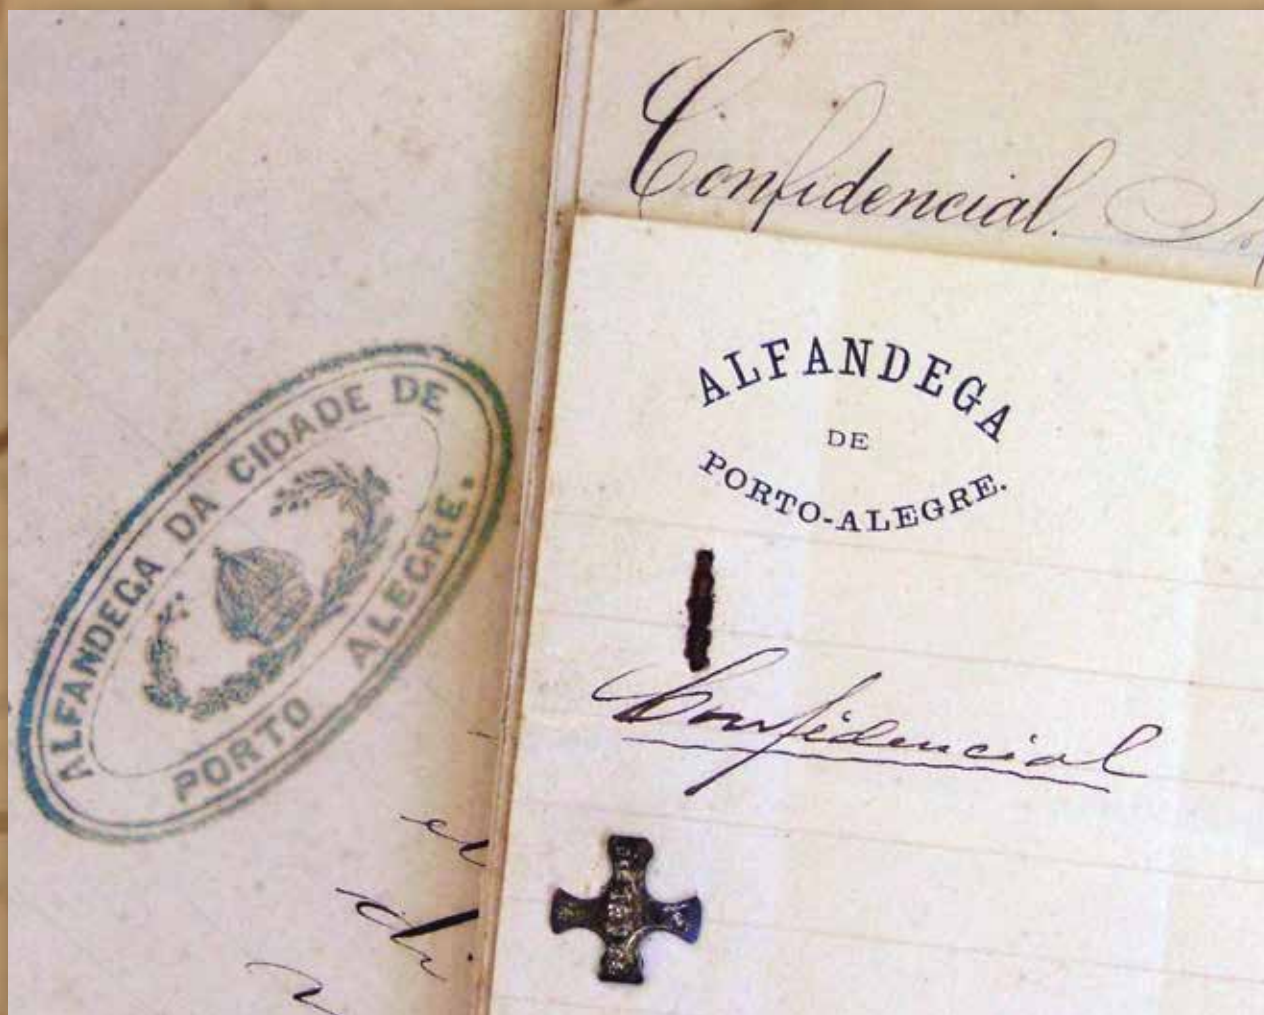 Confidencial.
ALFANDEGA DA CIDADE DE
PORTO ALEGRE.
ALFANDEGA
DE
PORTO-ALEGRE.
Confidencial